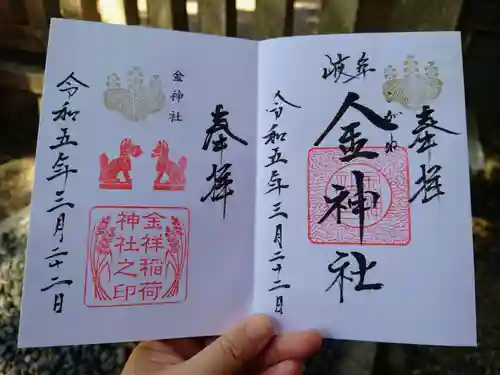 岐阜
奉拝
金神社
こがね
令和五年三月二十二日
奉拝
金神社
金祥稲荷
神社之印
令和五年三月二十二日